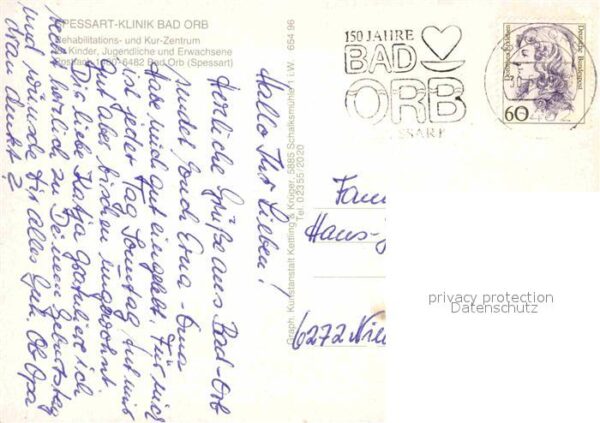 SPESSART-KLINIK BAD ORB
Rehabilitations- und Kur-Zentrum
für Kinder, Jugendliche und Erwachsene
Postfach 1180 · 6482 Bad Orb (Spessart)
664 96
Hallo Ihr Lieben!
Herzliche Grüße aus Bad-Orb
sendet Euch Erna-Oma
Habe mich gut eingelebt, Für mich
ist jeder Tag Sonntag, tut mir
Gut aber bischen ungewohnt
Dir liebe Katja gratuliere ich
recht herzlich zu Deinem Geburtstag
und wünsche dir alles Gute. Ob Opa
dran denkt?
Graph. Kunstanstalt Kettling & Krüger, 5885 Schalksmühle i. W.
Tel. 0 23 55 / 20 20
150 JAHRE
BAD
ORB
SPESSART
Deutsche Bundespost
60
Fam
Hans-
6272 Nie
privacy protection
Datenschutz